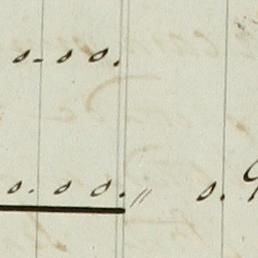 0-00.
0.00. " 0.